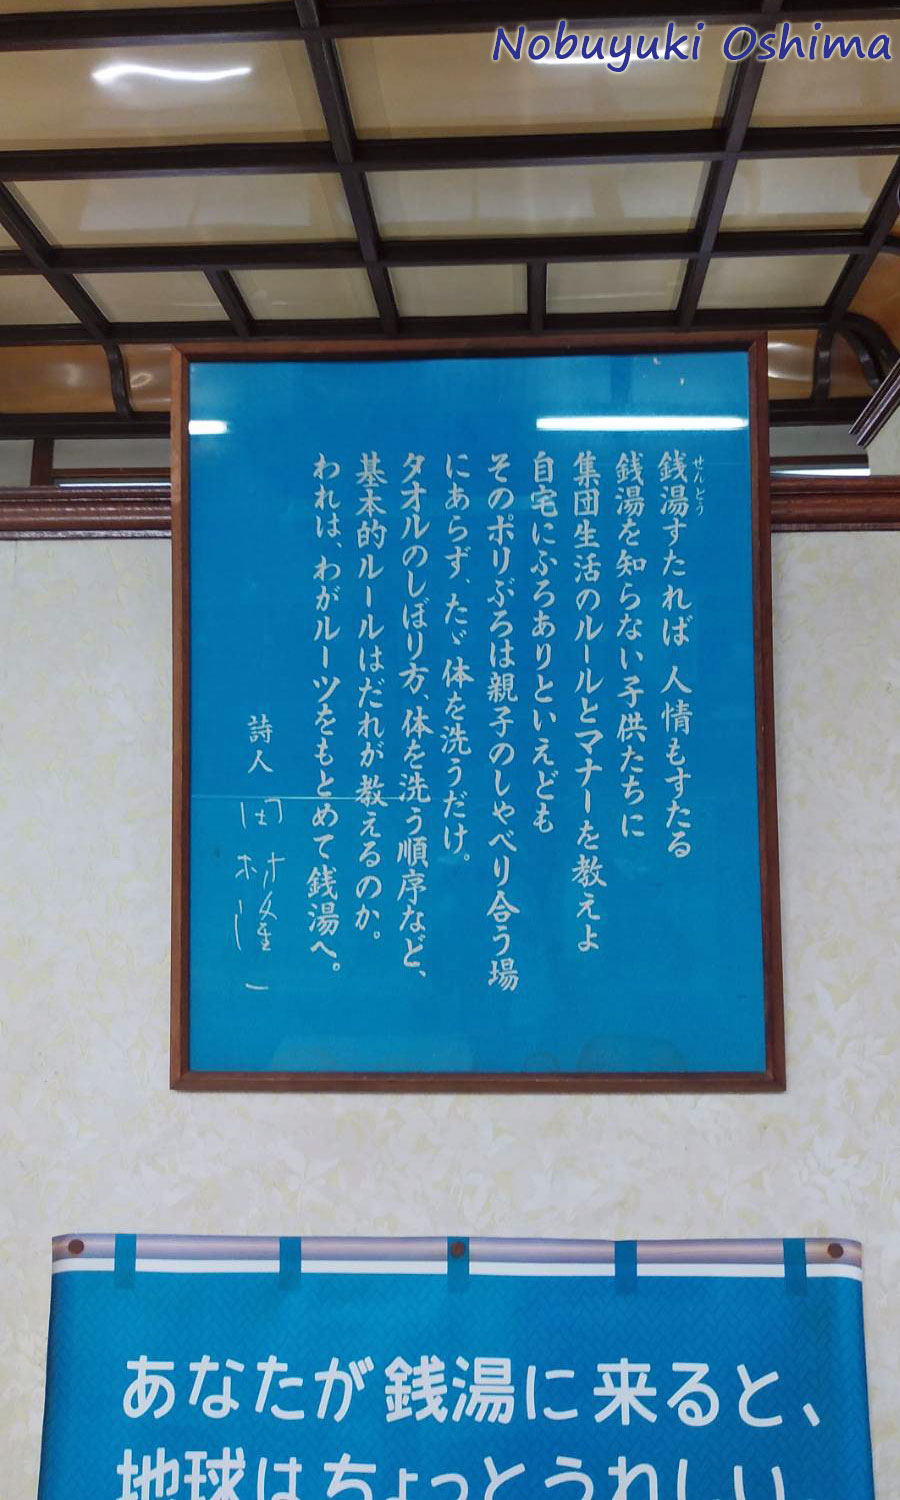 Nobuyuki Oshima
銭湯すたれば 人情もすたる
せんとう
銭湯を知らない子供たちに
集団生活のルールとマナーを教えよ
自宅にふろありといえども
そのポリぶろは親子のしゃべり合う場
にあらず、たゞ体を洗うだけ。
タオルのしぼり方、体を洗う順序など、
基本的ルールはだれが教えるのか。
われは、わがルーツをもとめて銭湯へ。
詩人 田村隆一
あなたが銭湯に来ると、
地球はちょっとうれしい